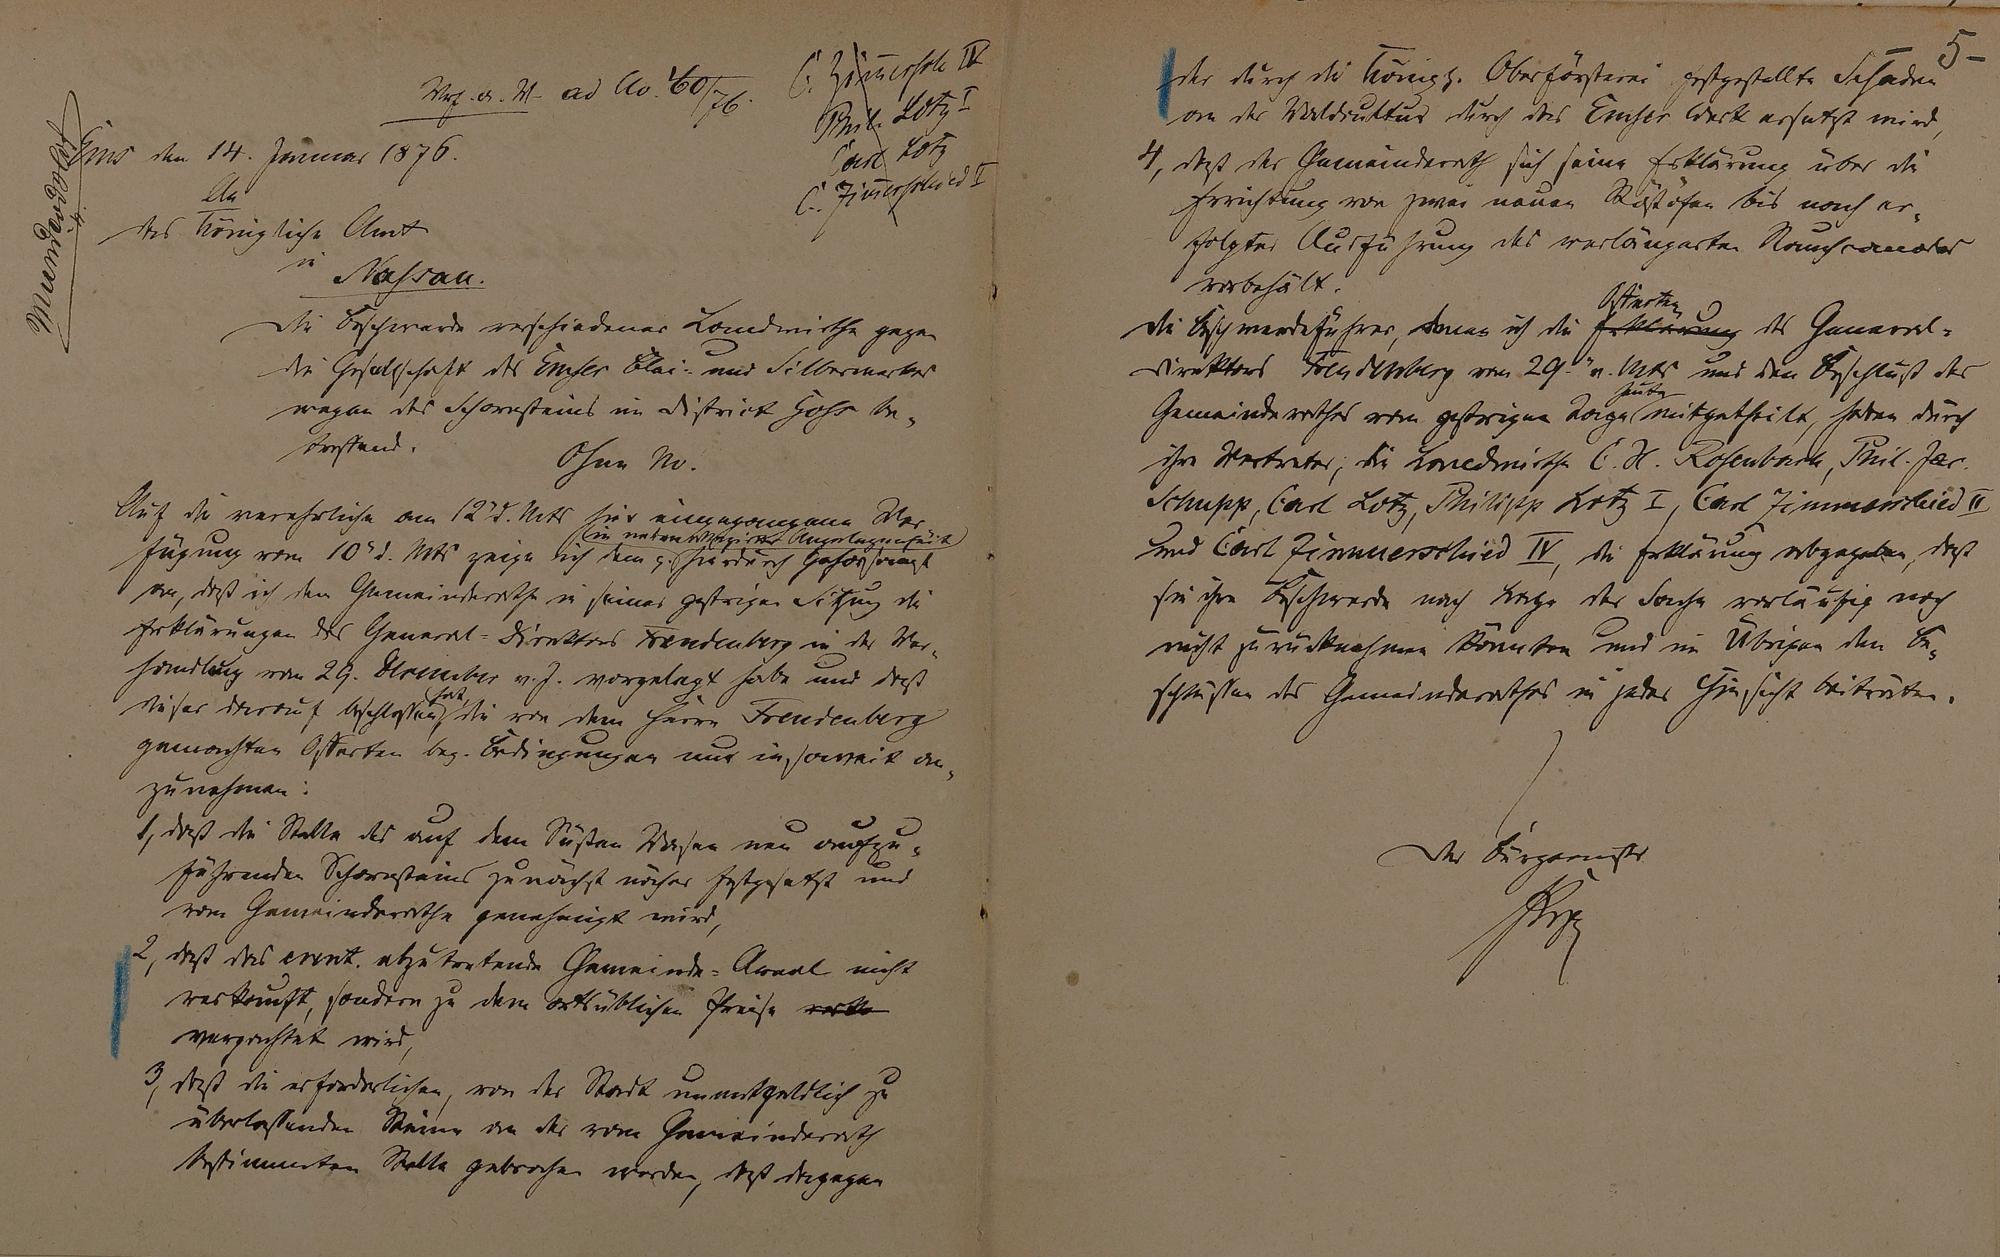 Vrf. a. U. ad No. 60/76.
C. Zimerschied IV
Phil. Lotz I
Carl Lotz
C. Zimerschied II
Ems den 14. Januar 1876.
An
das Königliche Amt
in
Nassau.
Die Beschwerde verschiedener Landwirthe gegen
die Gesellschaft des Emser Blei- und Silberwerkes
wegen des Schornsteins im District Hohe be-
treffend.
Ohne No.
Auf die verehrliche am 12" d. Mts hier eingegangene Ver-
fügung vom 10" d. Mts zeige ich dem p. hierdurch gehorsamst
in nebenbezeichneter Angelegenheit
an, daß ich dem Gemeinderathe in seiner gestrigen Sitzung die
Erklärungen des General-Direktors Freudenberg in der Ver-
handlung vom 29. Dezember v. J. vorgelegt habe und daß
dieser darauf beschlossen hat, die von dem Herrn Freudenberg
gemachten Offerten bez. Bedingungen nur insoweit an-
zunehmen:
1, daß die Stelle des auf dem Süßen Wasen neu aufzu-
führenden Schornsteins zunächst näher festgesetzt und
vom Gemeinderathe genehmigt wird,
2, daß das event. abzutretende Gemeinde-Areal nicht
verkauft, sondern zu dem ortsüblichen Preise
verpachtet wird,
3, daß die erforderlichen, von der Stadt unentgeldlich zu
überlassenden Steine an der vom Gemeinderath
bestimmten Stelle gebrochen werden, daß dagegen
5-
der durch die Königl. Oberförsterei festgestellte Schaden
an der Waldcultur durch das Emser Werk ersetzt wird,
4, daß der Gemeinderath sich seine Erklärung über die
Errichtung von zwei neuen Röstöfen bis nach er-
folgter Ausführung des verlängerten Rauchcanales
vorbehält.
Die Beschwerdeführer, denen ich die Offerten Erklärung des General-
direktors Freudenberg vom 29." v. Mts und den Beschluß des
Gemeinderathes vom gestrigen Tage heute mitgetheilt, haben durch
ihre Vertreter, die Landwirthe C. H. Rosenbach, Phil. Jac.
Schupp, Carl Lotz, Philipp Lotz I, Carl Zimmerschied II
und Carl Zimmerschied IV, die Erklärung abgegeben, daß
sie ihre Beschwerde nach Lage der Sache vorläufig noch
nicht zurücknehmen könnten und im Übrigen den Be-
schlüssen des Gemeinderathes in jeder Hinsicht beiträten.
Der Bürgermeister